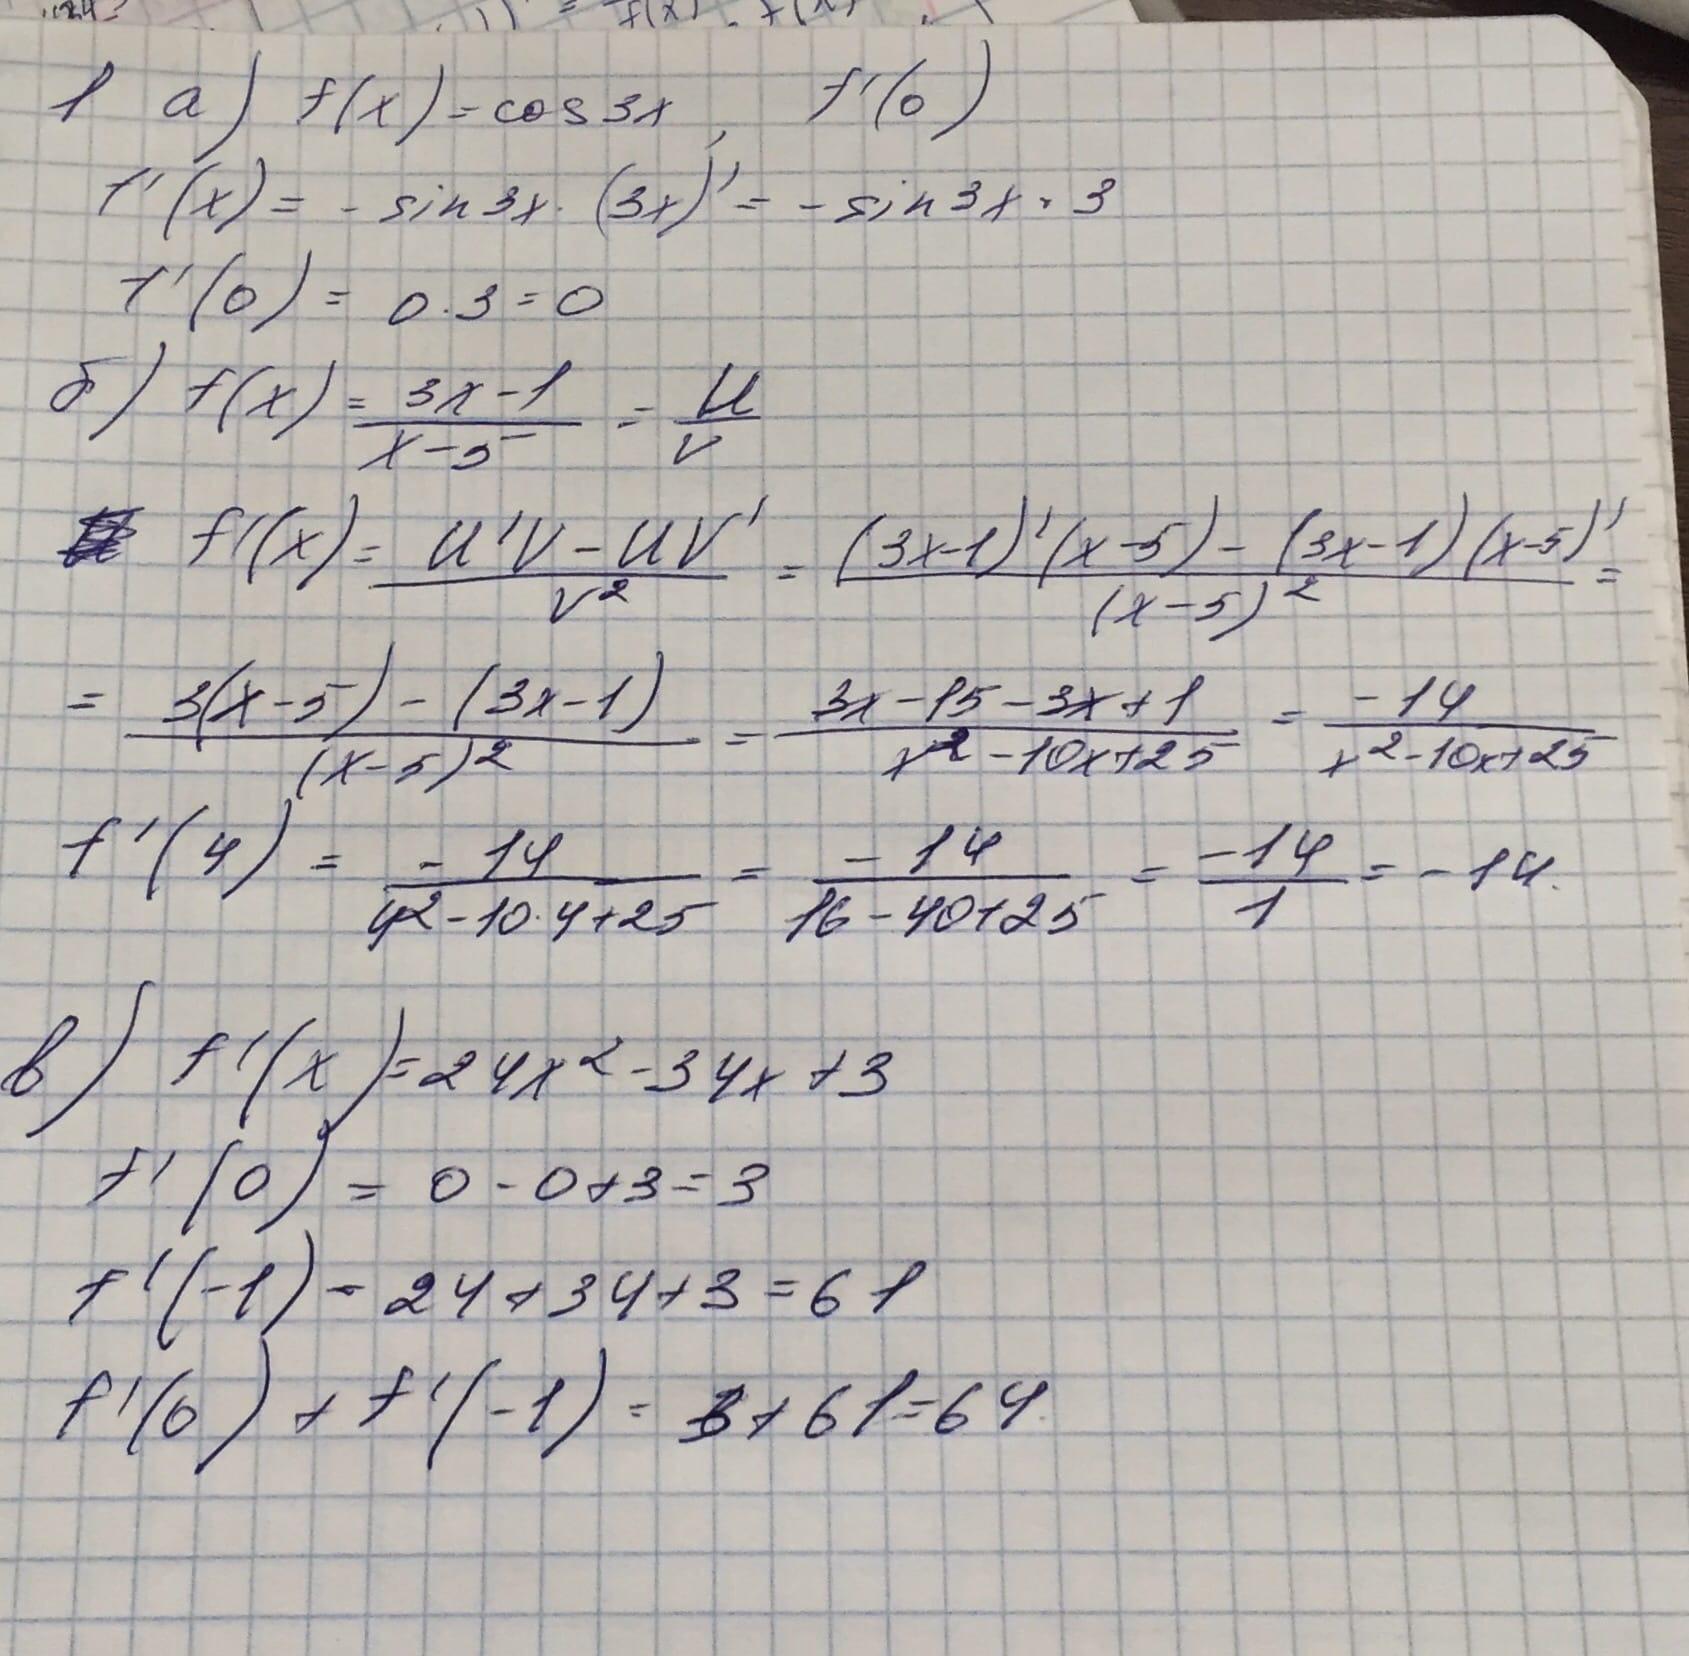 1 а) f(x) = cos 3x, f'(0)
f'(x) = - sin 3x · (3x)' = - sin 3x · 3
f'(0) = 0 · 3 = 0
б) f(x) = (3x - 1)/(x - 5) = u/v
f'(x) = (u'v - uv')/v² = ((3x-1)'(x-5) - (3x-1)(x-5)')/(x-5)² =
= (3(x-5) - (3x-1))/(x-5)² = (3x - 15 - 3x + 1)/(x² - 10x + 25) = -14/(x² - 10x + 25)
f'(4) = -14/(4² - 10·4 + 25) = -14/(16 - 40 + 25) = -14/1 = -14.
в) f'(x) = 24x² - 34x + 3
f'(0) = 0 - 0 + 3 = 3
f'(-1) = 24 + 34 + 3 = 61
f'(0) + f'(-1) = 3 + 61 = 64.